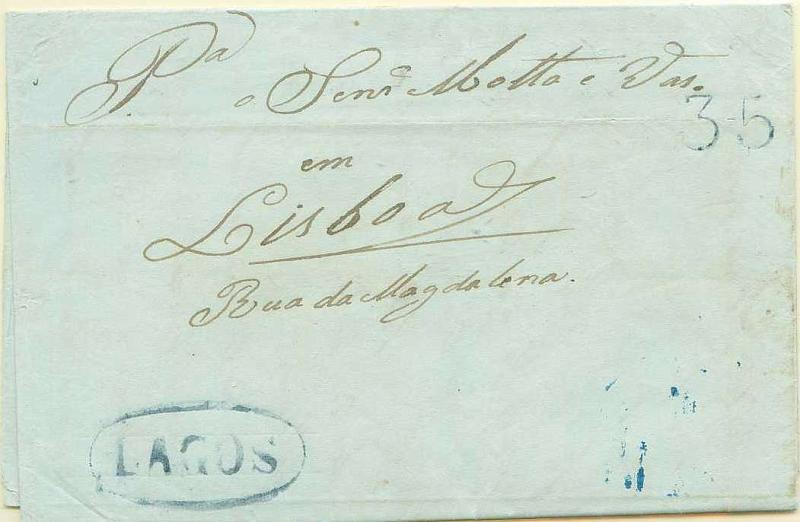 Pa
o Senr Motta e Vas.
35
em
Lisboa
Rua da Magdalena.
LAGOS